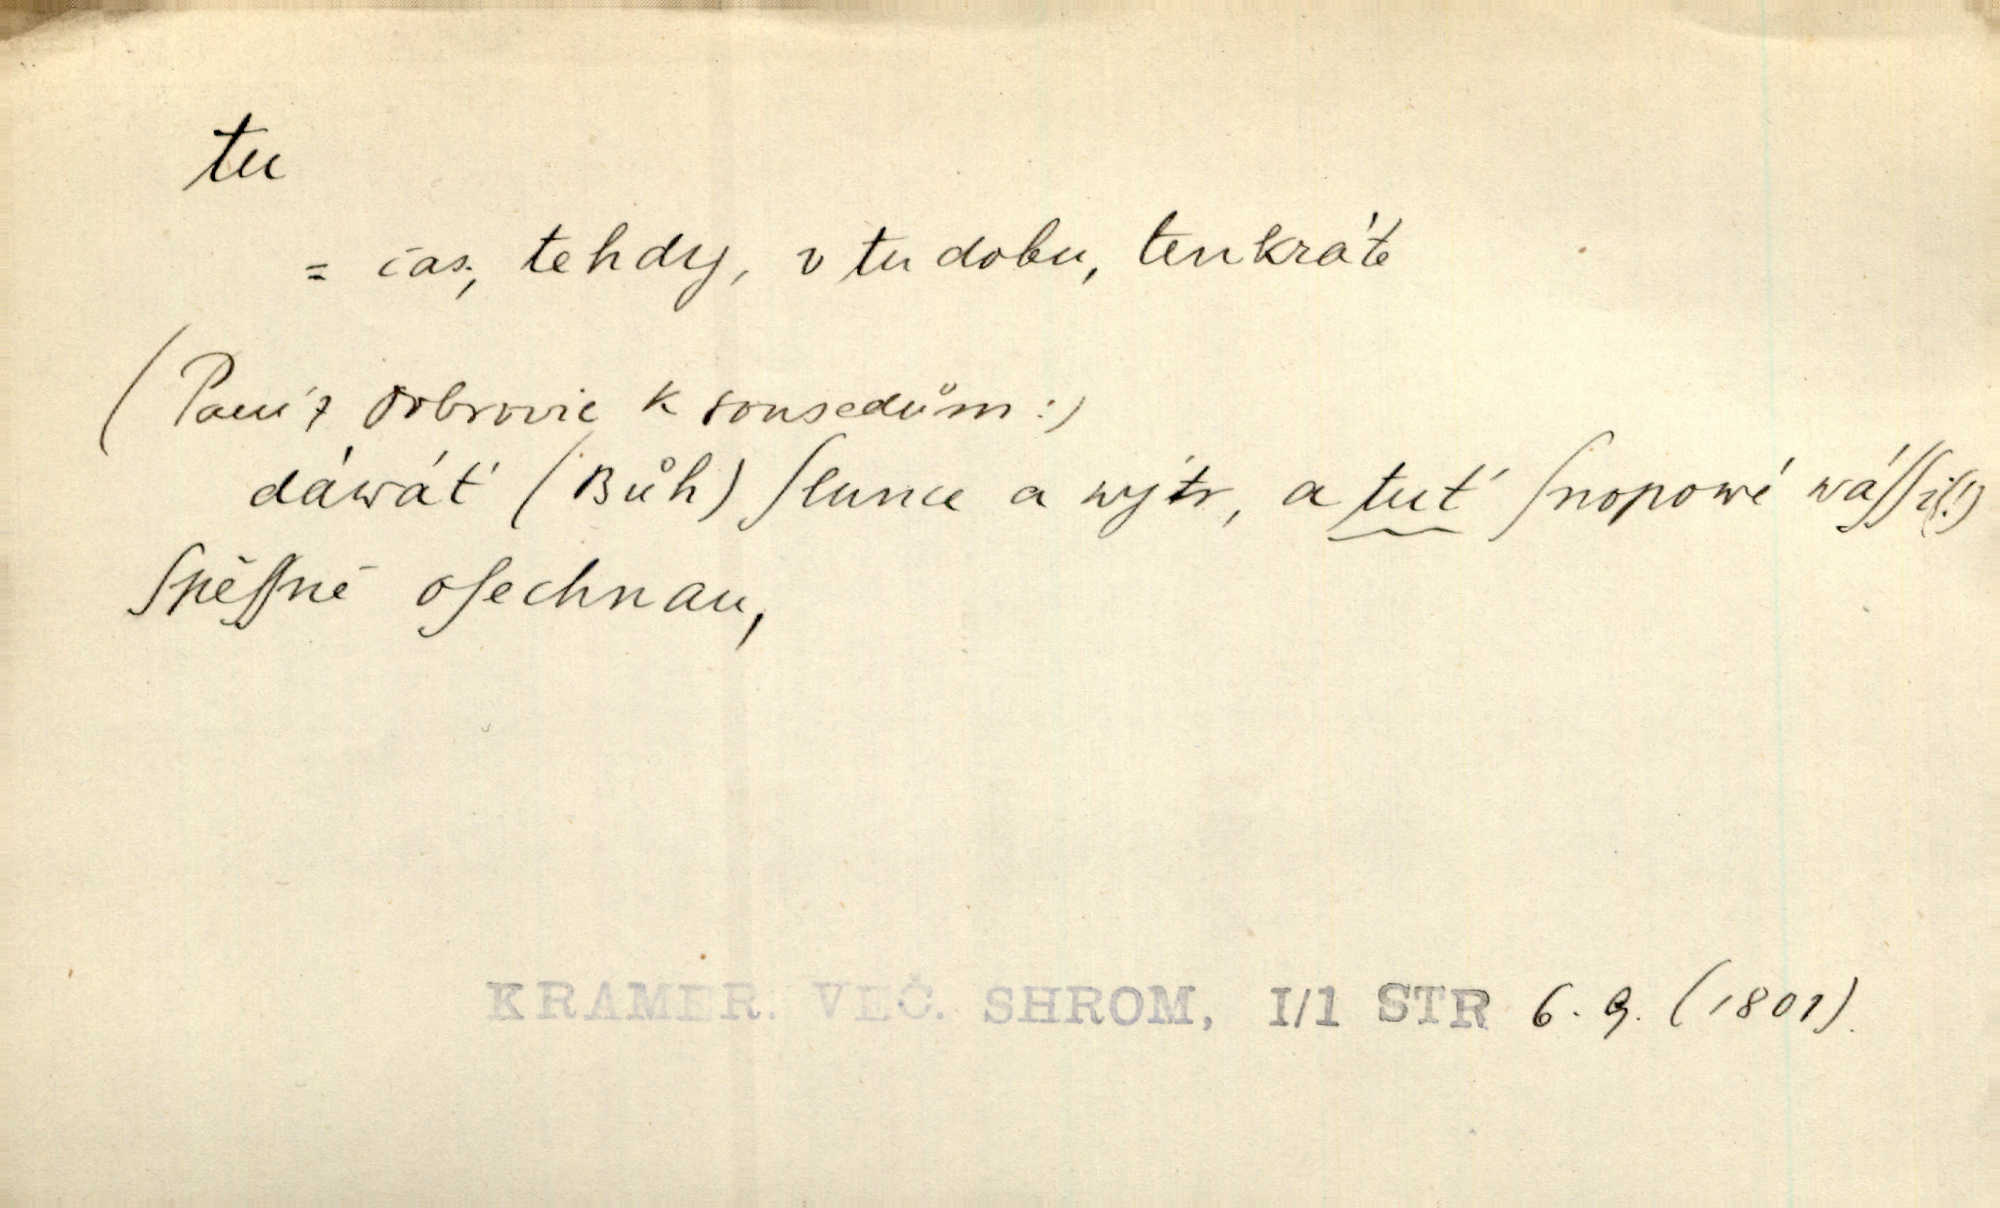 tu
= čas, tehdy, v tu dobu, tenkráte
(Paní z Dobrovic k sousedům:)
dáwáť (Bůh) ſlunce a wjtr, a tuť ſnopowé wáſſi(!)
ſpěſſně oſechnau,
KRAMER. VEČ. SHROM, I/1 STR 6. 9. (1801).